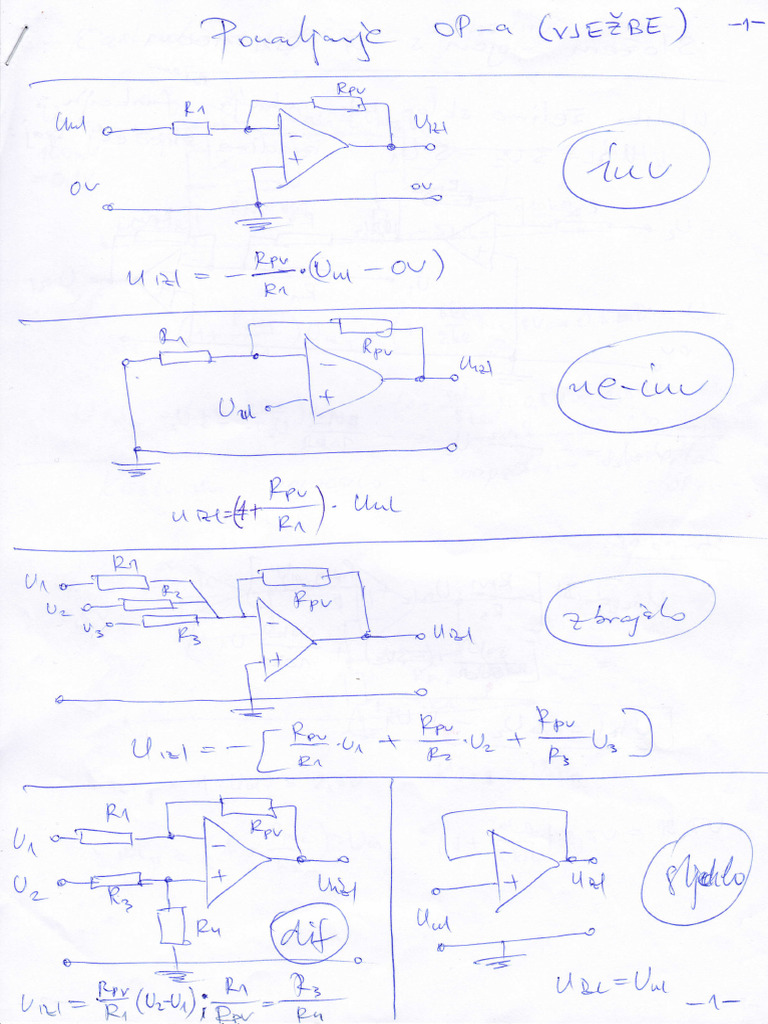 Ponavljanje OP-a (VJEŽBE) -1-
Rpv
R1
Uul
Uizl
- 
+
inv
0V
0V
U izl = - Rpv/R1 · (Uul - 0V)
R1
Rpv
Uizl
-
+
Uul
ne-inv
U izl = (1 + Rpv/R1) · Uul
R1
U1
R2
U2
U3
R3
Rpv
-
+
Uizl
zbrajalo
U izl = - [ Rpv/R1 · U1 + Rpv/R2 · U2 + Rpv/R3 U3 ]
R1
Rpv
U1
-
U2
+
R3
Uizl
R4
dif
U izl = Rpv/R1 (U2-U1) ; R1/Rpv = R3/R4
-
+
Uizl
Uul
slijedilo
U izl = Uul
-1-